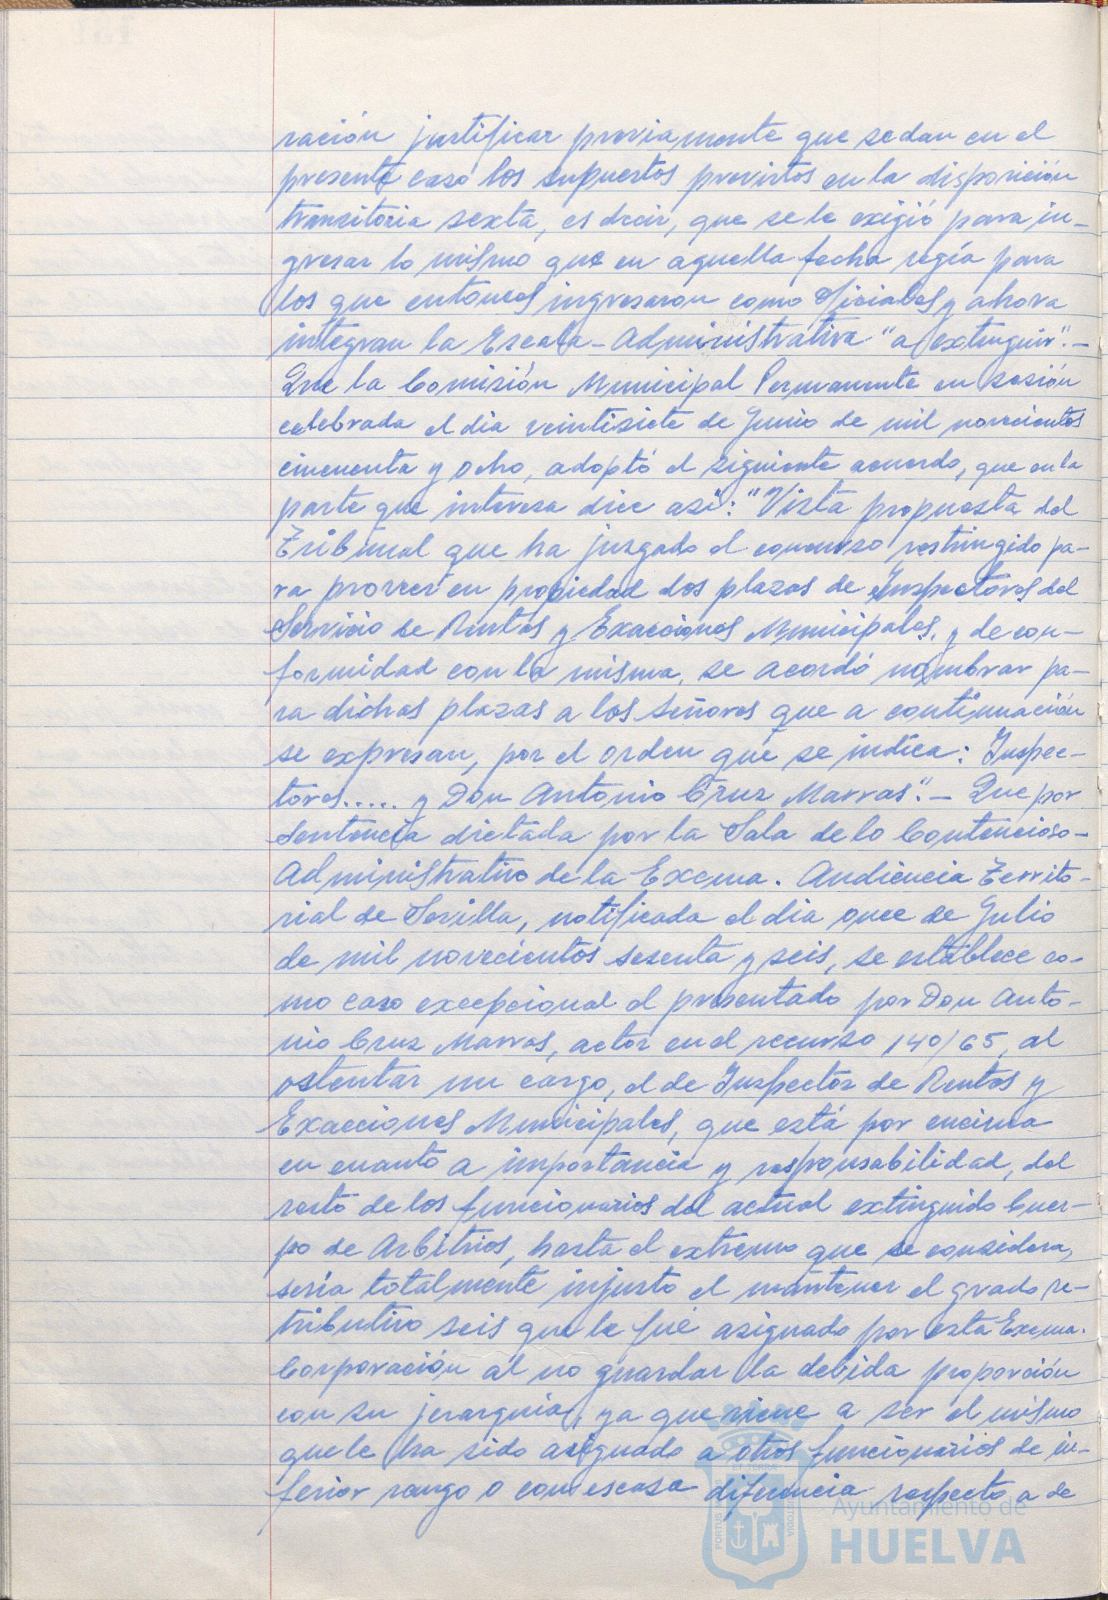 ración justificar previamente que se dan en el
presente caso los supuestos previstos en la disposición
transitoria sexta, es decir, que se le exigió para in-
gresar lo mismo que en aquella fecha regía para
los que entonces ingresaron como Oficiales y ahora
integran la Escala-Administrativa "a extinguir".-
Que la Comisión Municipal Permanente en sesión
celebrada el dia veintisiete de Junio de mil novecientos
cincuenta y ocho, adoptó el siguiente acuerdo, que en la
parte que interesa dice asi: "Vista propuesta del
Tribunal que ha juzgado el concurso restringido pa-
ra proveer en propiedad dos plazas de Inspectores del
Servicio de Rentas y Exacciones Municipales, y de con-
formidad con la misma, se acordó nombrar pa-
ra dichas plazas a los señores que a continuación
se expresan, por el orden que se indica: Inspec-
tores..... y Don Antonio Cruz Marras".- Que por
Sentencia dictada por la Sala de lo Contencioso-
Administrativo de la Excma. Audiencia Territo-
rial de Sevilla, notificada el dia once de Julio
de mil novecientos sesenta y seis, se establece co-
mo caso excepcional el presentado por Don Anto-
nio Cruz Marras, actor en el recurso 140/65, al
ostentar un cargo, el de Inspector de Rentas y
Exacciones Municipales, que está por encima
en cuanto a importancia y responsabilidad, del
resto de los funcionarios del actual extinguido Cuer-
po de Arbitrios, hasta el extremo que se considera,
sería totalmente injusto el mantener el grado re-
tributivo seis que le fué asignado por esta Excma.
Corporación al no guardar la debida proporción
con su jerarquia, ya que viene a ser el mismo
que le ha sido asignado a otros funcionarios de in-
ferior rango o con escasa diferencia respecto a de
Ayuntamiento de
HUELVA